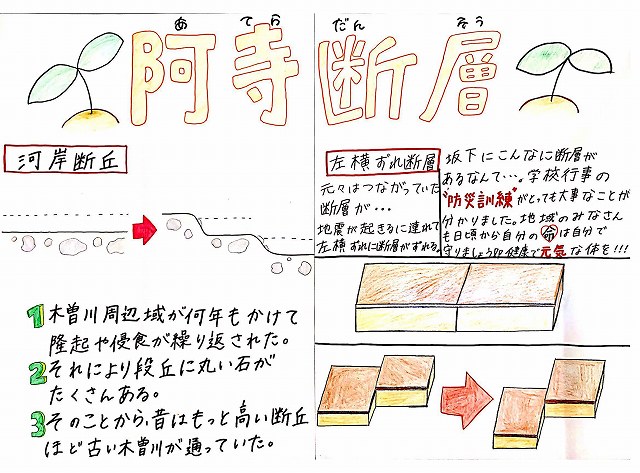 あてら だんそう
阿寺断層
河岸断丘
1 木曽川周辺域が何年もかけて
隆起や侵食が繰り返された。
2 それにより段丘に丸い石が
たくさんある。
3 そのことから、昔はもっと高い断丘
ほど古い木曽川が通っていた。
左横ずれ断層
元々はつながっていた
断層が・・・
地震が起きるに連れて
左横ずれに断層がずれる。
坂下にこんなに断層が
あるなんて・・・。学校行事の
"防災訓練"がとっても大事なことが
分かりました。地域のみなさん
も日頃から自分の命は自分で
守りましょう 健康で元気な体を!!!